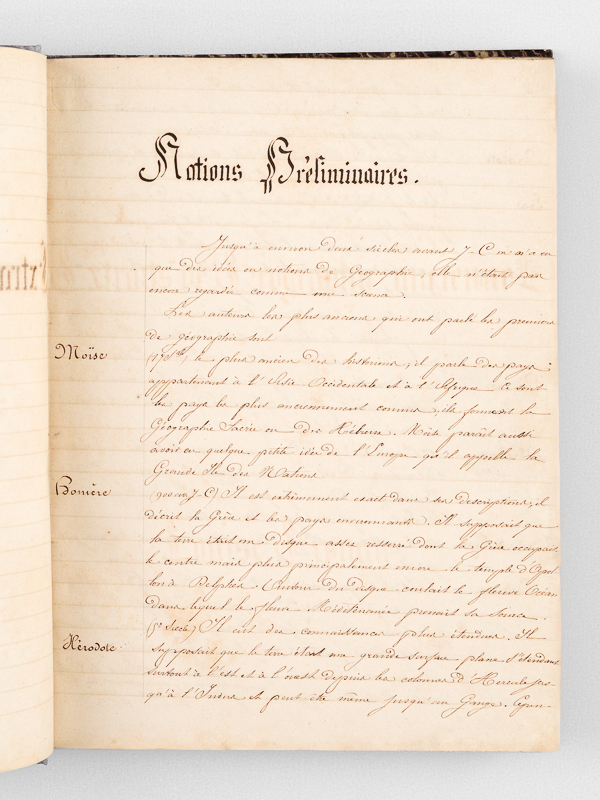 Notions Préliminaires.
Jusqu'à environ deux siècles avant J-C on n'a eu
que des idées ou notions de Géographie, elle n'était pas
encore regardée comme une science.
Les auteurs les plus anciens qui ont parlé les premiers
de géographie sont
Moïse
le plus ancien des historiens, il parle des pays
appartenant à l'Asie Occidentale et à l'Afrique. Ce sont
les pays les plus anciennement connus, ils forment la
Géographie Sacrée ou des Hébreux. Moïse paraît aussi
avoir eu quelque petite idée de l'Europe qu'il appelle la
Grande Ile des Nations
Homère
(900 av J-C) Il est extrêmement exact dans ses descriptions, il
décrit la Grèce et les pays environnants. Il supposait que
la terre était un disque assez resserré dont la Grèce occupait
le centre mais plus principalement encore le temple d'Apol
lon à Delphes. Autour du disque coulait le fleuve Océan
dans lequel le fleuve Méditerranée prenait sa source.
Hérodote
(5e Siècle) Il eut des connaissances plus étendues. Il
supposait que la terre était une grande surface plane s'étendant
surtout à l'est et à l'ouest depuis les colonnes d'Hercule jus-
qu'à l'Indus et peut être même jusqu'au Gange.
Extra